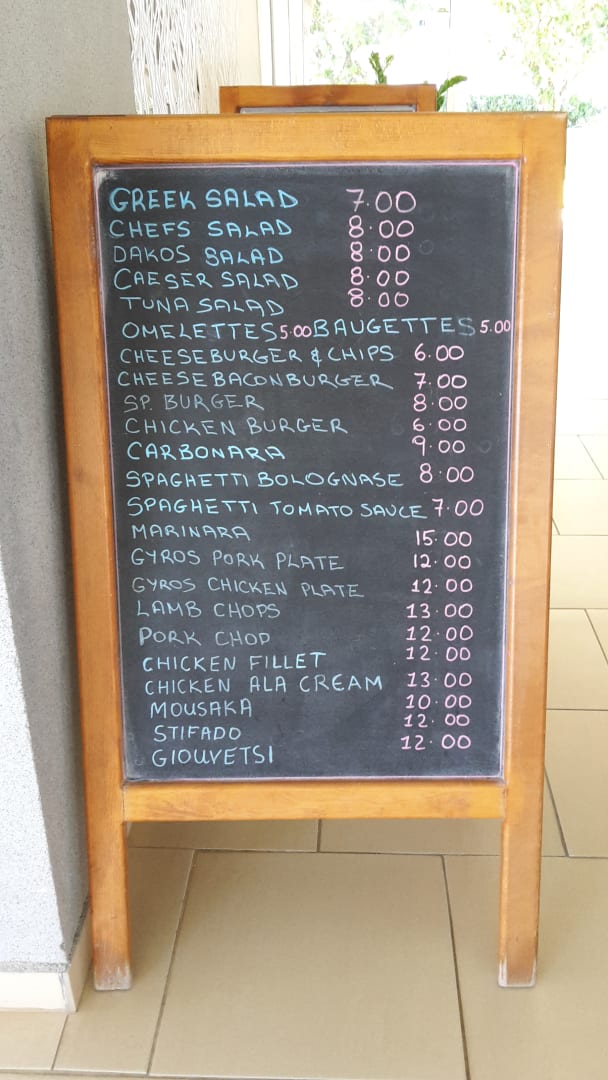 GREEK SALAD 7.00
CHEFS SALAD 8.00
DAKOS SALAD 8.00
CAESER SALAD 8.00
TUNA SALAD 8.00
OMELETTES 5.00 BAUGETTES 5.00
CHEESEBURGER & CHIPS 6.00
CHEESE BACON BURGER 7.00
SP. BURGER 8.00
CHICKEN BURGER 6.00
CARBONARA 9.00
SPAGHETTI BOLOGNASE 8.00
SPAGHETTI TOMATO SAUCE 7.00
MARINARA 15.00
GYROS PORK PLATE 12.00
GYROS CHICKEN PLATE 12.00
LAMB CHOPS 13.00
PORK CHOP 12.00
CHICKEN FILLET 12.00
CHICKEN ALA CREAM 13.00
MOUSAKA 10.00
STIFADO 12.00
GIOUVETSI 12.00